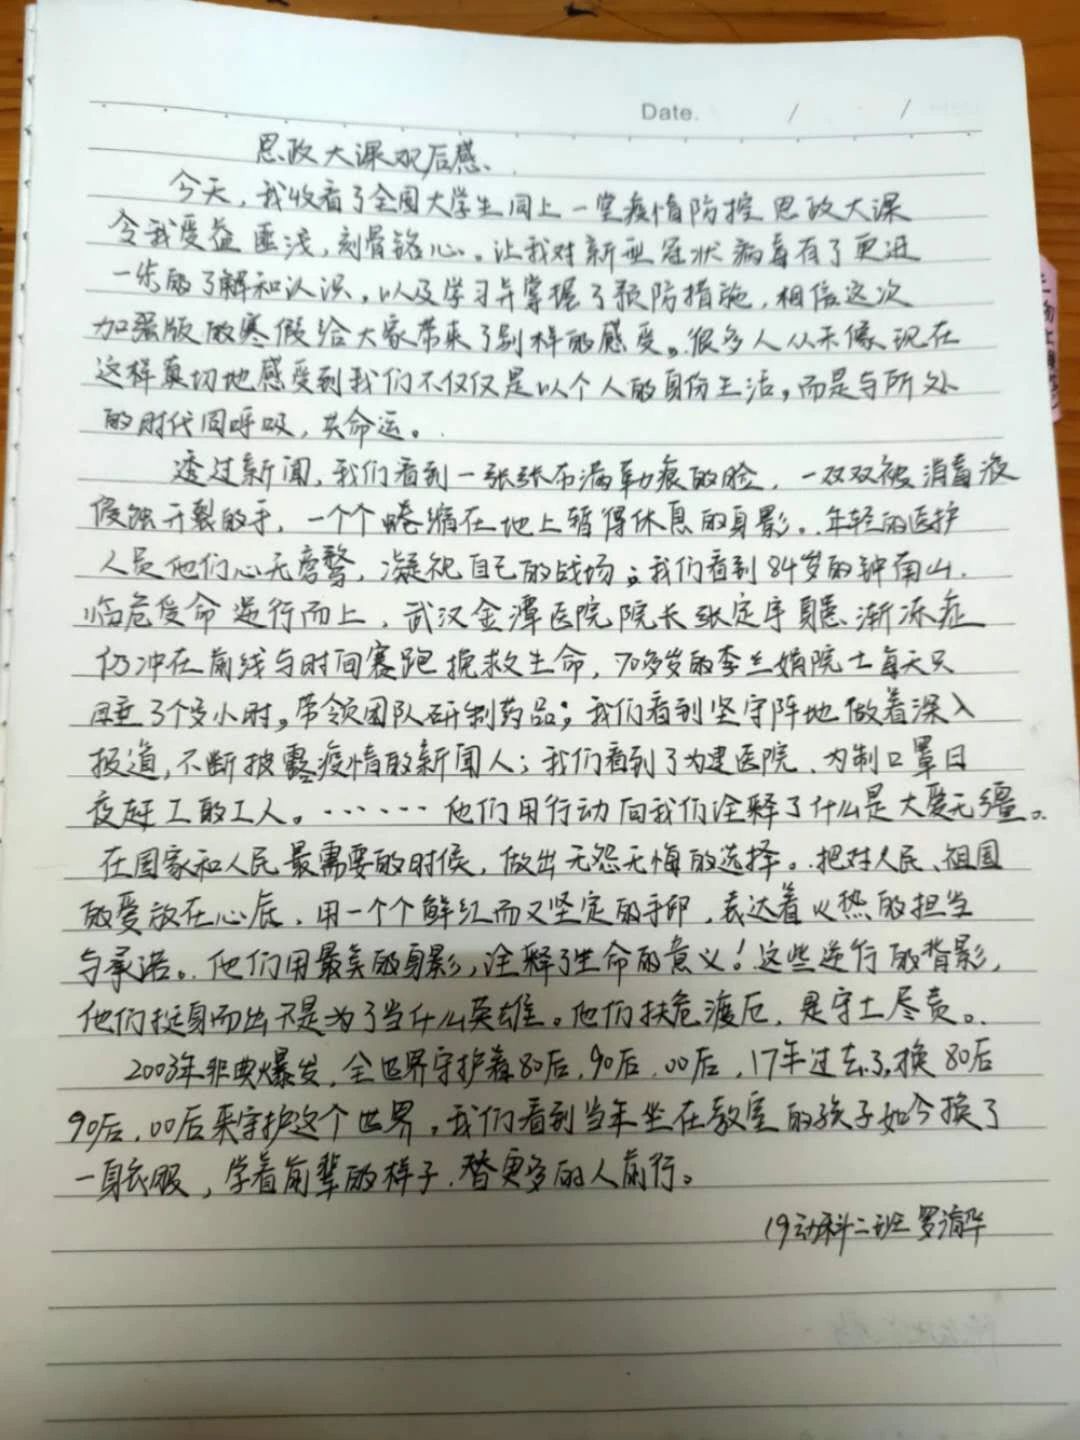 Date. / /
思政大课观后感.
今天,我收看了全国大学生同上一堂疫情防控思政大课
令我受益匪浅,刻骨铭心。让我对新型冠状病毒有了更进
一步的了解和认识,以及学习并掌握了预防措施,相信这次
加强版的寒假给大家带来了别样的感受。很多人从未像现在
这样真切地感受到我们不仅仅是以个人的身份生活,而是与所处
的时代同呼吸,共命运。
透过新闻,我们看到一张张布满勒痕的脸,一双双被消毒液
侵蚀开裂的手,一个个蜷缩在地上暂得休息的身影。年轻的医护
人员他们心无旁骛,凝视自己的战场;我们看到84岁的钟南山.
临危受命逆行而上,武汉金潭医院院长张定宇身患渐冻症
仍冲在前线与时间赛跑挽救生命,70多岁的李兰娟院士每天只
睡3个多小时。带领团队研制药品;我们看到坚守阵地做着深入
报道,不断披露疫情的新闻人;我们看到了为建医院、为制口罩日
夜赶工的工人。······他们用行动向我们诠释了什么是大爱无疆。
在国家和人民最需要的时候,做出无怨无悔的选择。把对人民、祖国
的爱放在心底,用一个个鲜红而又坚定的手印,表达着火热的担当
与承诺。他们用最美的身影,诠释了生命的意义!这些逆行的背影,
他们挺身而出不是为了当什么英雄。他们扶危渡厄,是守土尽责。
2003年非典爆发,全世界守护着80后,90后,00后,17年过去了,换80后
90后,00后来守护这个世界。我们看到当年坐在教室的孩子如今换了
一身衣服,学着前辈的样子,替更多的人前行。
19动科二班 罗